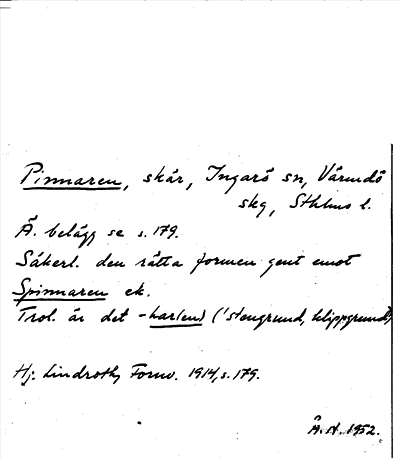 Pinnaren, skär, Ingarö sn, Värmdö
skg, Sthlms l.
Ä. belägg se s. 179.
Säkerl. den rätta formen gent emot
Spinnaren ek.
Trol. är det -har(en) ('stengrund, klippgrund')
Hj. Lindroth, Fornv. 1914, s. 179.
Å. H. 1952.